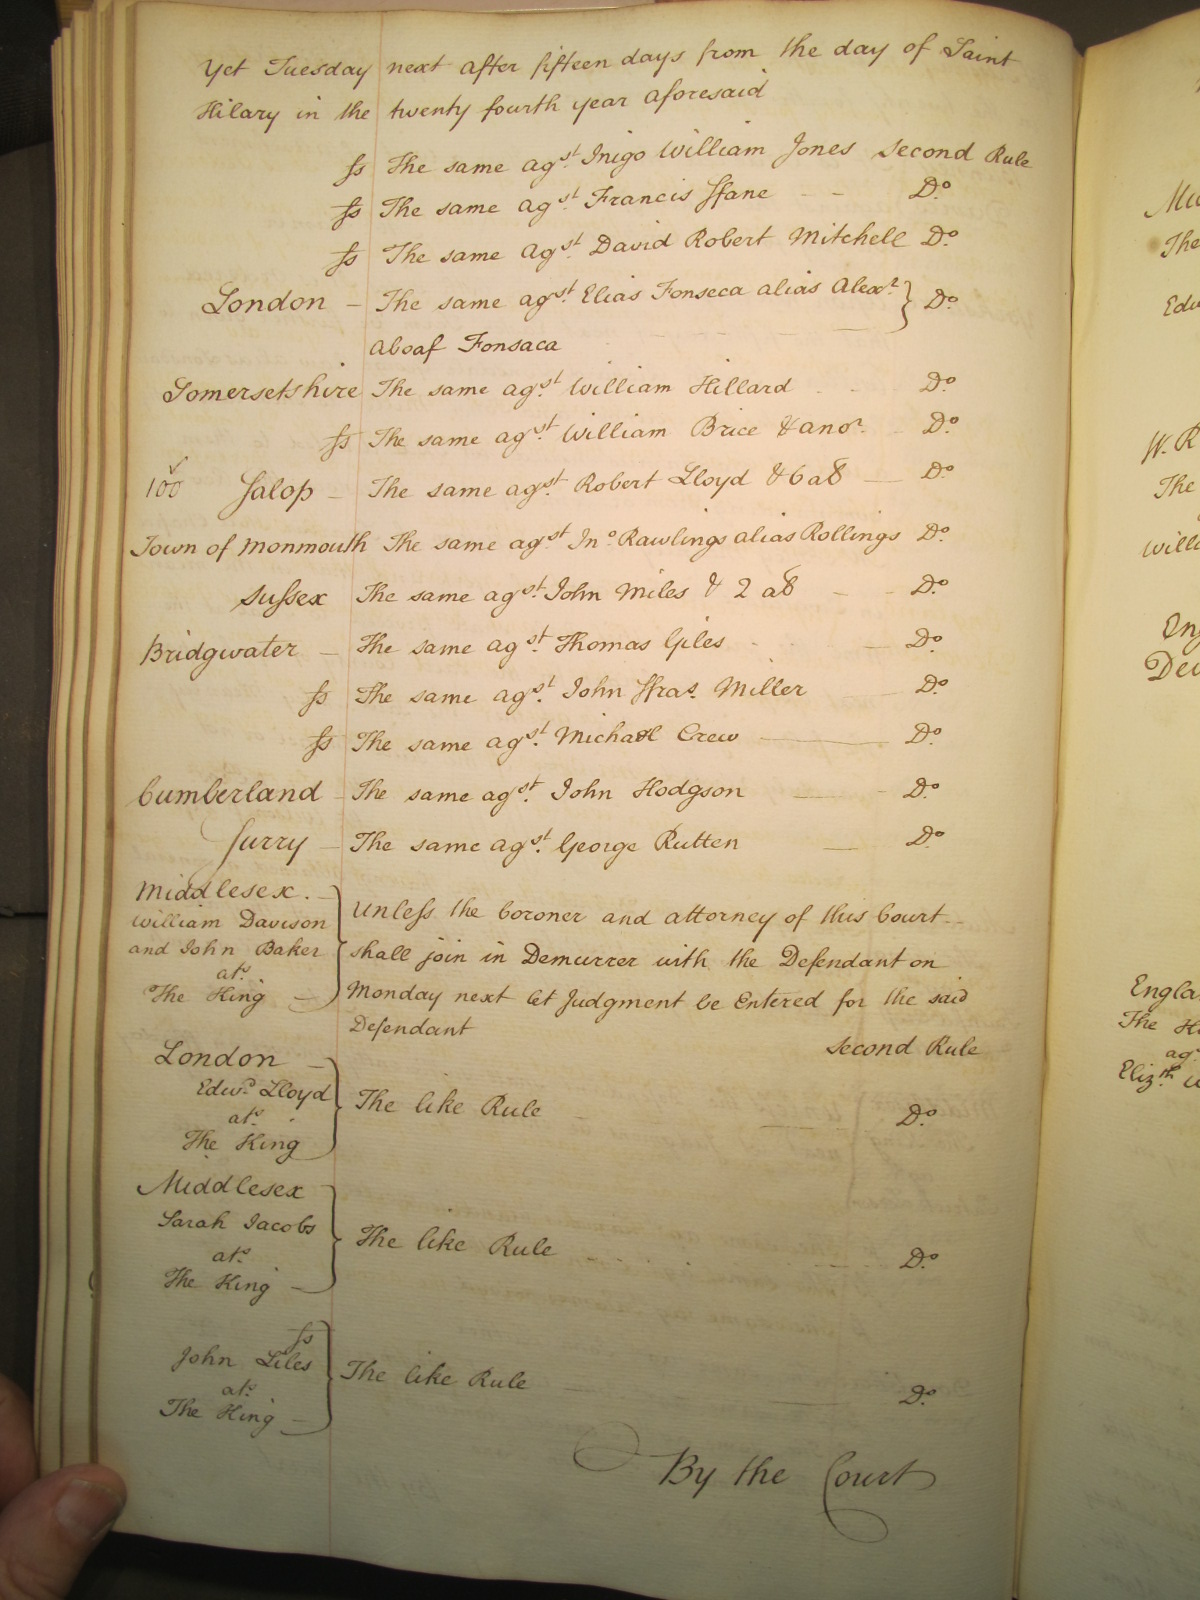 Yet Tuesday next after fifteen days from the day of Saint
Hilary in the twenty fourth year aforesaid
ſs The same agst. Inigo William Jones Second Rule
ſs The same agst. Francis ffane - - Do.
ſs The same agst. David Robert Mitchell Do.
London - The same agst. Elias Fonseca alias Alexr. } Do.
Aboaf Fonsaca
Somersetshire The same agst. William Hillard Do.
ſs The same agst. William Brice & anor. Do.
100 Salop - The same agst. Robert Lloyd & 6 as Do.
Town of Monmouth The same agst. Jno. Rawlings alias Rollings Do.
Suſsex The same agst. John Miles & 2 as - - Do.
Bridgwater - The same agst. Thomas Giles - Do.
ſs The same agst. John ffras. Miller Do.
ſs The same agst. Michael Crew Do.
Cumberland - The same agst. John Hodgson - Do.
Surry - The same agst. George Rutten - Do.
Middlesex. -
William Davison
and John Baker
ats.
The King -
Unleſs the Coroner and attorney of this Court
shall join in Demurrer with the Defendant on
Monday next let Judgment be Entered for the said
Defendant
Second Rule
London -
Edwd. Lloyd
ats.
The King
The like Rule Do.
Middlesex
Sarah Jacobs
ats.
The King -
The like Rule Do.
ſs
John Liles
ats.
The King -
The like Rule Do.
By the Court
The
W. R
The
Engla
The
ag
Elizth.